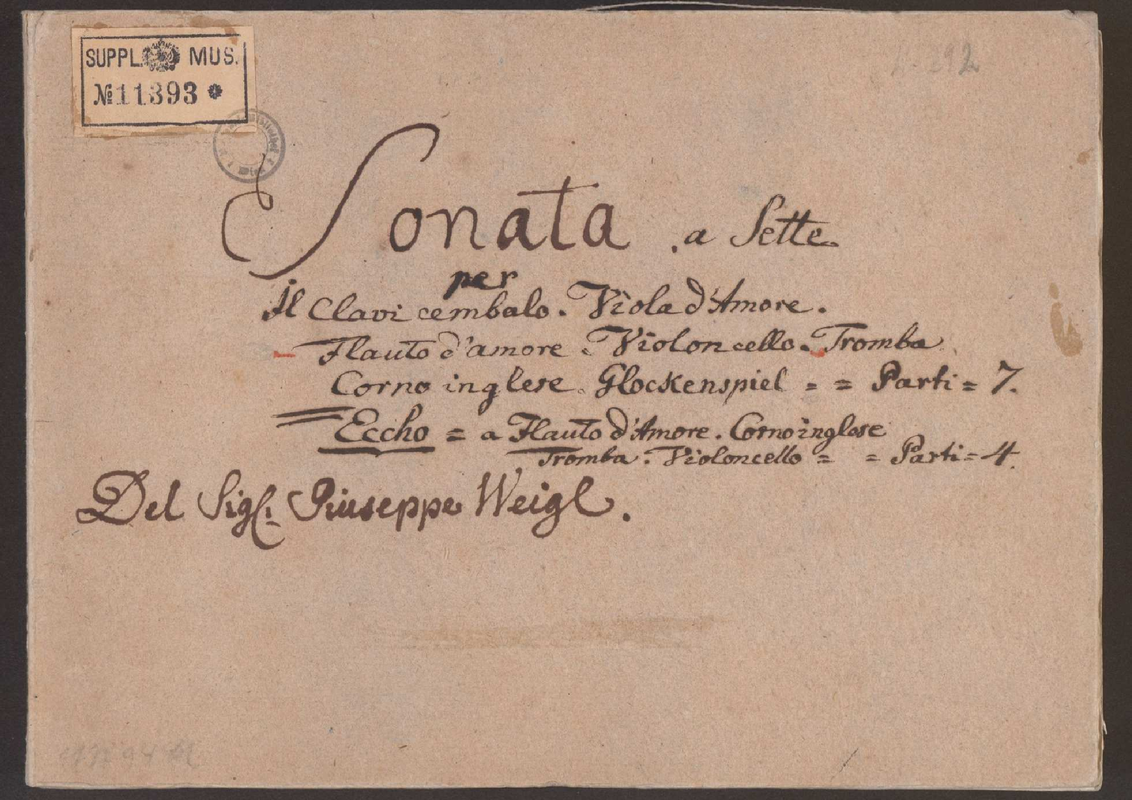 SUPPL. MUS.
№ 11393 *
Sonata a Sette
per
Il Clavi cembalo. Viola d'Amore.
Flauto d'amore. Violoncello. Tromba
Corno inglese. Glockenspiel = = Parti = 7.
Eccho = a Flauto d'Amore. Corno inglese
Tromba. Violoncello = = Parti = 4.
Del Sigl. Giuseppe Weigl.